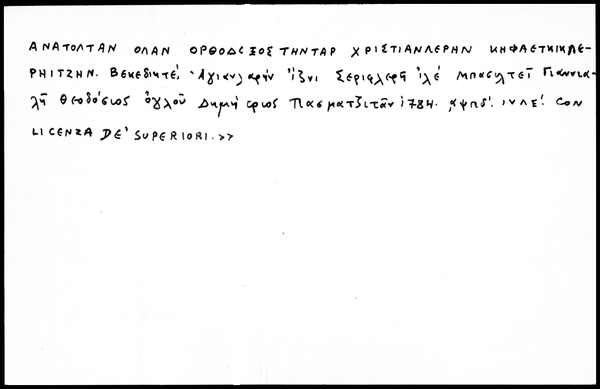 ΑΝΑΤΟΛΤΑΝ ΟΛΑΝ ΟΡΘΟΔΟΞΟΣ ΤΗΝΤΑΡ ΧΡΙΣΤΙΑΝΛΕΡΗΝ ΚΗΦΑΕΤΚΙΚΛΕ-
ΡΗΙΤΖΗΝ. Βεκεδικτέ, Ἀγιανλαρὴν ἴζνι Σεριφλερῆ ἰλέ Μπασιλτεῖ Γιαννια-
λῆ Θεοδόσιος ὀγλοῦ Δημήτριος Πασματζιτᾶν 1784. ͵αψπδ´. ΙΥΛΕ´. CON
LICENZA DE' SUPERIORI.>>